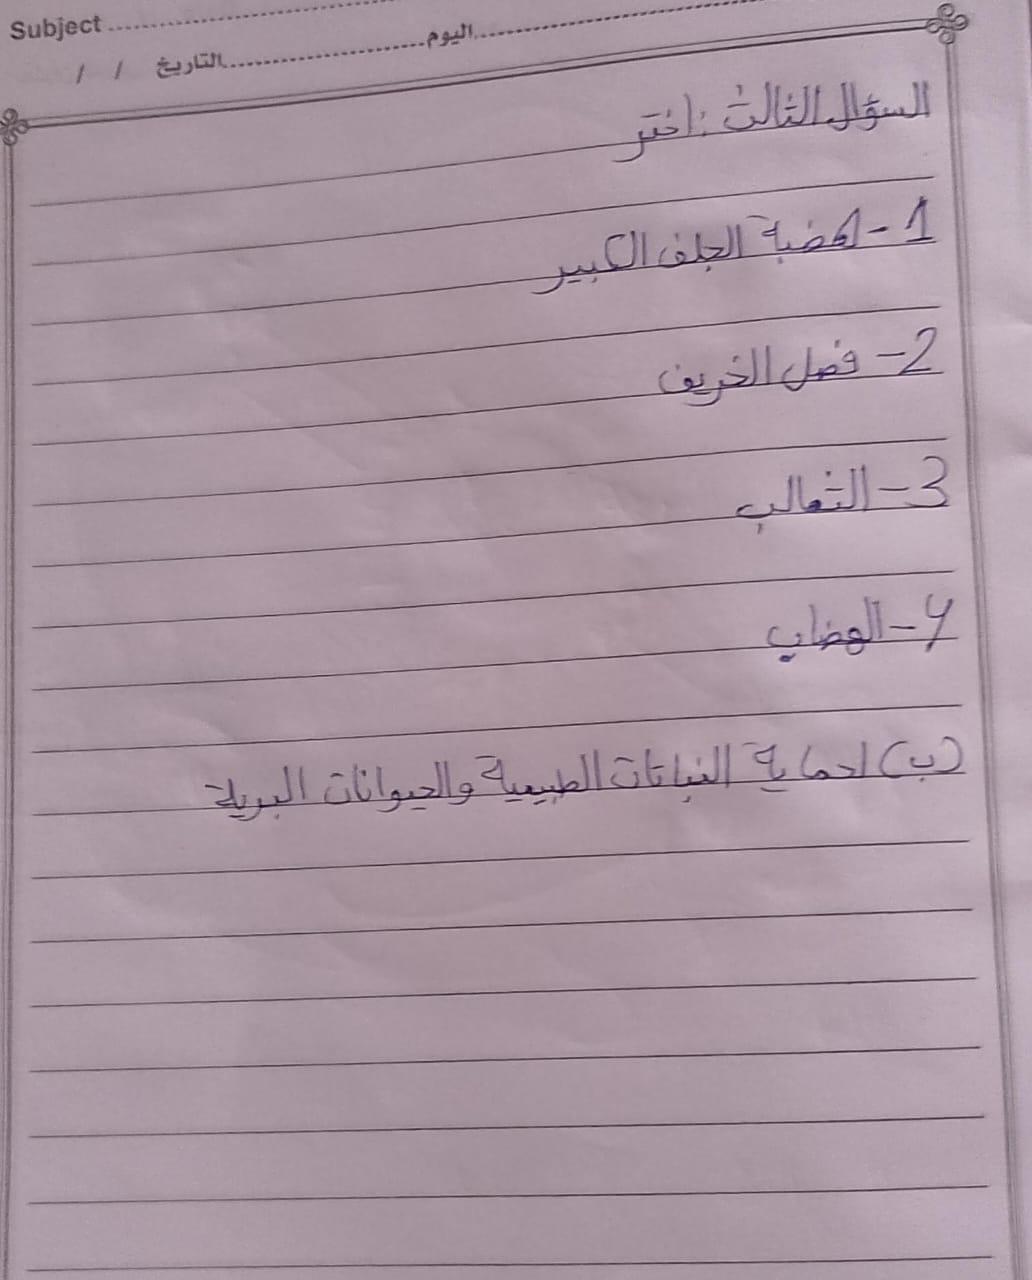 Subject
اليوم
التاريخ / /
السؤال الثالث : اختر
1 - هضبة الجلف الكبير
2 - فصل الخريف
3 - الثعالب
4 - الهضاب
(ب) لحماية النباتات الطبيعية والحيوانات البرية